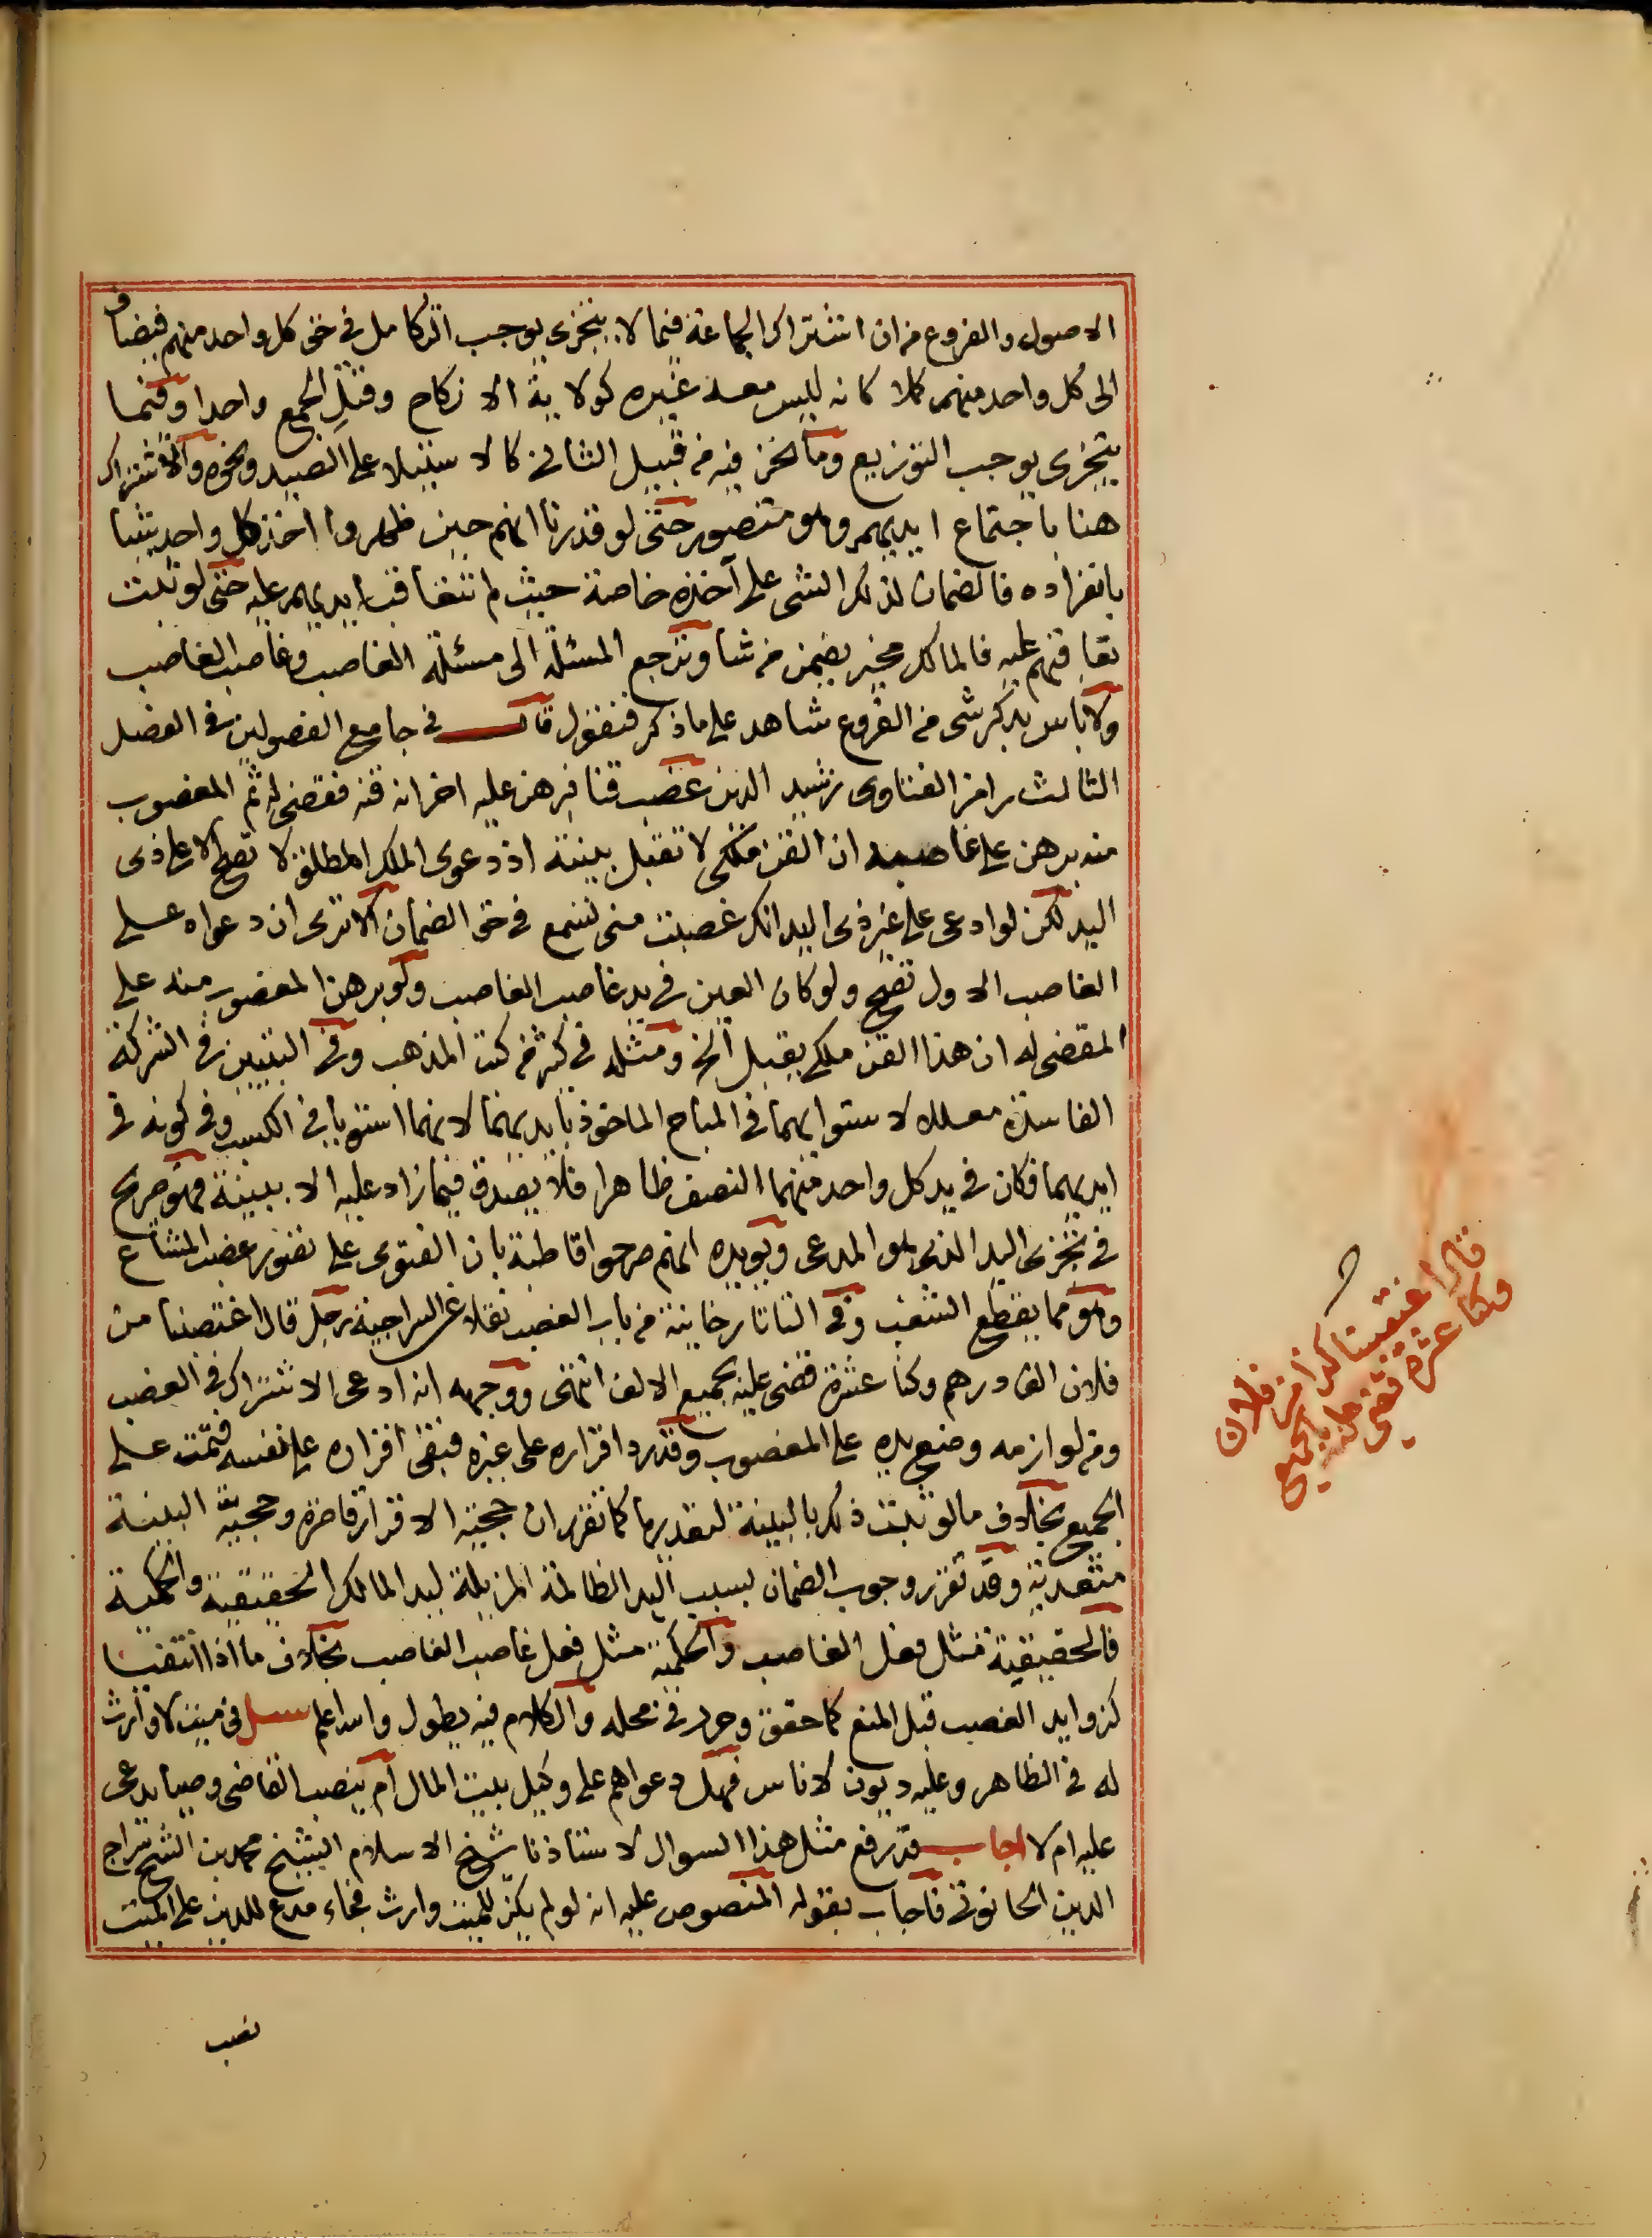 الاصول والفروع من ان اشتراك الجماعة فيما لا يتجزى يوجب التكامل في حق كل واحد منهم فيضاف
الى كل واحد منهم كملا كانه ليس معه غيره كولاية الانكاح وقتل الجمع واحدا وفيما
يتجزى يوجب التوزيع وما نحن فيه من قبيل الثاني كالاستيلاء على الصيد ونحوه والاشتراك
هنا باجتماع ايديهم وهو متصور حتى لو قدرنا انهم حين ظهروا اخذ كل واحد شيئا
بانفراده فالضمان لذلك الشى على آخذه خاصة حيث لم تتعاقب ايديهم عليه حتى لو ثبت
تعاقبهم عليه فالمالك مخير يضمن من شا وترجع المسئلة الى مسئلة الغاصب وغاصب الغاصب
ولا باس بذكر شى من الفروع شاهد على ما ذكر فنقول قال في جامع الفصولين في الفصل
الثالث رامز الفتاوى رشيد الدين غصب قنا فبرهن عليه اخر انه قنه فقضى له ثم المغصوب
منه برهن على غاصبه ان القن ملكى لا تقبل بينته اذ دعوى الملك المطلق لا تصح الا على ذى
اليد لكن لو ادعى على غير ذى اليد انك غصبت منى تسمع في حق الضمان الا ترى ان دعواه على
الغاصب الاول تصح ولو كان العين في يد غاصب الغاصب ولو برهن المغصوب منه على
المقضى له ان هذا القن ملكى يقبل الخ ومثله في كثير من كتب المذهب وفي التبيين في الشركة
الفاسدة معلله لاستوايهما في المباح الماخوذ بايديهما لانهما استويا في الكسب وفي كونه في
ايديهما فكان في يد كل واحد منهما النصف ظاهرا فلا يصدق فيما زاد عليه الا ببينة فهو صريح
في تجزى اليد الذى هو المدعى ويويده انهم صرحوا قاطبة بان الفتوى على تصور غصب المشاع
وهو مما يقطع الشغب وفي التاتارخانية من باب الغصب نقلا عن السراجية رجل قال اغتصبنا من
فلان الف درهم وكنا عشرة قضى عليه بجميع الالف انتهى ووجهه انه ادعى الاشتراك في الغصب
ومن لوازمه وضع يده على المغصوب وقد رد اقراره على غيره فبقى اقراره على نفسه فتمت على
الجميع بخلاف ما لو ثبت ذلك بالبينة لتعديها كما تقرر ان حجية الاقرار قاصرة وحجية البينة
متعدية وقد تقرر وجوب الضمان بسبب اليد الظالمة المزيلة ليد المالك الحقيقية والحكمية
فالحقيقية مثل فعل الغاصب والحكمية مثل فعل غاصب الغاصب بخلاف ما اذا انتفيا
كزوايد الغصب قبل المنع كما حقق وحرر في محله والكلام فيه يطول والله اعلم سئل في ميت لا وارث
له في الظاهر وعليه ديون لاناس فهل دعواهم على وكيل بيت المال ام ينصب القاضى وصيا يدعى
عليه ام لا اجاب قد رفع مثل هذا السوال لاستاذنا شيخ الاسلام الشيخ محمد بن الشيخ سراج
الدين الحانوتى فاجاب بقوله المنصوص عليه انه لو لم يكن للميت وارث فجاء مدع للدين على الميت
نصب
قال اغتصبنا كذا من فلان
وكنا عشرة يقضى
عليه بالجميع